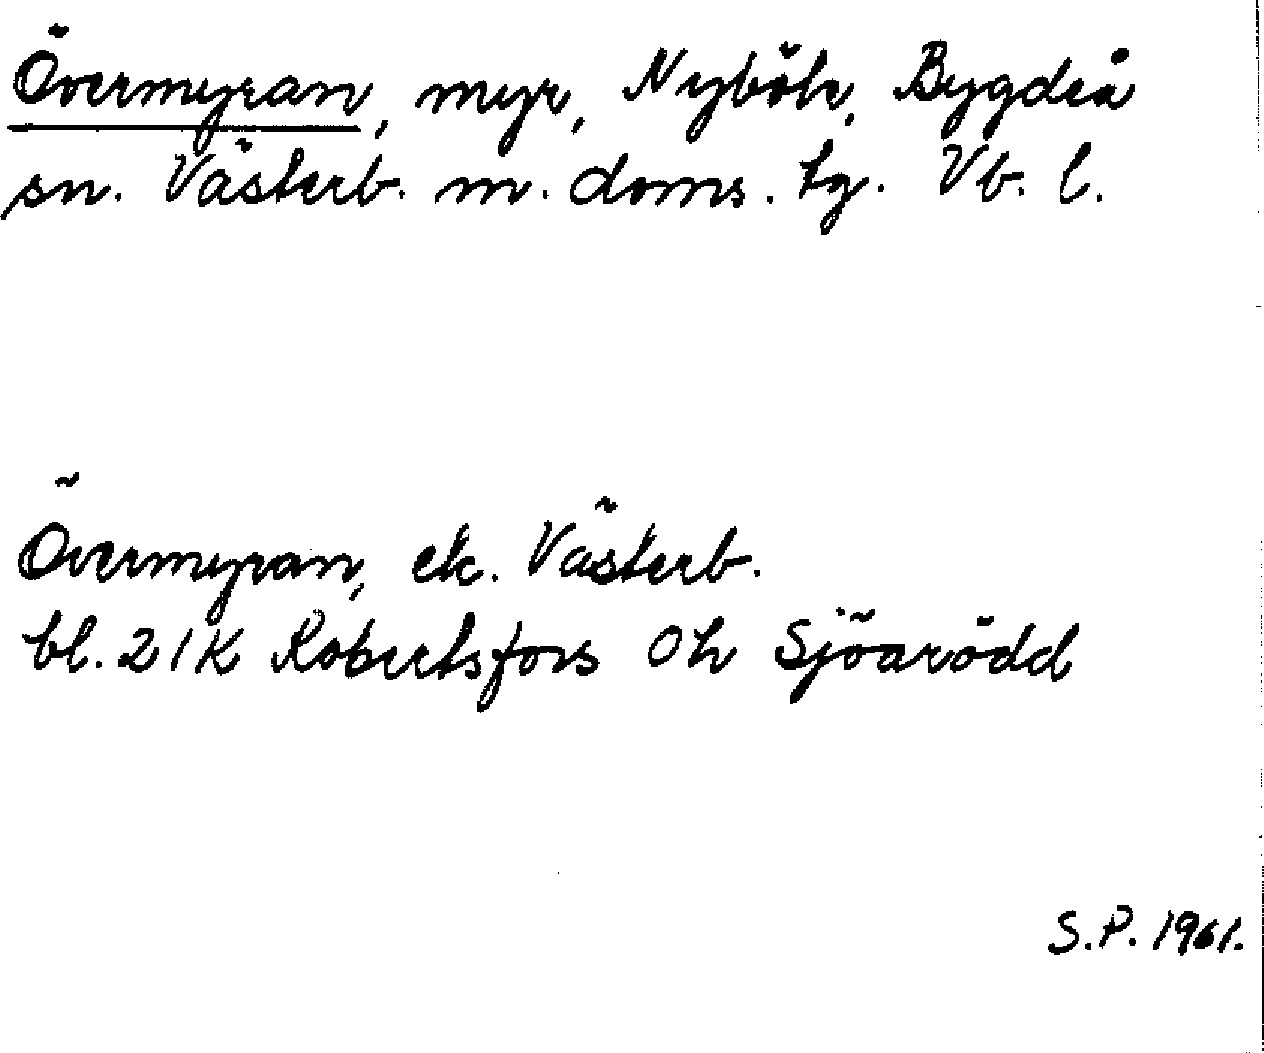 Övermyran, myr, Nyböle, Bygdeå
sn. Västerb. m. doms. tg. Vb. l.
Övermyran, ek. Västerb.
bl. 21K Robertsfors 0h Sjöarödd
S.P. 1961.